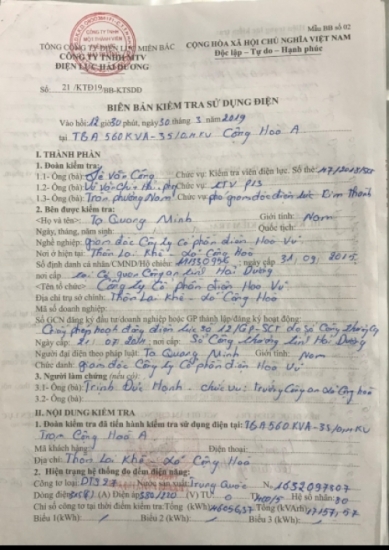 Mẫu BB số 02
TỔNG CÔNG TY ĐIỆN LỰC MIỀN BẮC
CỘNG HÒA XÃ HỘI CHỦ NGHĨA VIỆT NAM
CÔNG TY TNHH MTV
Độc lập - Tự do - Hạnh phúc
ĐIỆN LỰC HẢI DƯƠNG
Số: 21 /KTĐ19/BB-KTSDĐ
BIÊN BẢN KIỂM TRA SỬ DỤNG ĐIỆN
Vào hồi 12 giờ 30 phút, ngày 30 tháng 3 năm 2019
tại TBA 560KVA-35/0,4KV Cộng Hoà A
I. THÀNH PHẦN
1. Đoàn kiểm tra:
1.1- Ông (bà): Lê Văn Công Chức vụ: Kiểm tra viên điện lực. Số thẻ:
1.2- Ông (bà): Chức vụ: KTV P13
1.3- Ông (bà): Trần phương Nam Chức vụ: phó giám đốc điện lực Kim Thành
2. Bên được kiểm tra:
<Họ và tên>: Tạ Quang Minh Giới tính: Nam
Ngày, tháng, năm sinh: Quốc tịch:
Nghề nghiệp: giám đốc Công ty Cổ phần điện Hoà Vư
Nơi ở hiện tại: Thôn Lai Khê - xã Cộng Hoà
Số định danh cá nhân/CMND/Hộ chiếu: ngày cấp
nơi cấp Công an tỉnh Hải Dương
<Tên tổ chức> Công ty Cổ phần điện Hoà Vư
Địa chỉ trụ sở chính: Thôn Lai Khê - xã Cộng Hoà
Mã số doanh nghiệp:
Số GCN đăng ký đầu tư/doanh nghiệp hoặc GP thành lập/đăng ký hoạt động:
Giấy phép hoạt động điện lực số 12/GP-SCT do Sở Công thương Cấp
Ngày cấp: nơi cấp: Sở Công thương tỉnh Hải Dương
Người đại diện theo pháp luật: Tạ Quang Minh Giới tính: Nam
Chức danh: giám đốc Công ty Cổ phần điện Hoà Vư
3. Người làm chứng (nếu có):
3.1- Ông (bà): Trịnh Đức Hạnh - chức vụ: trưởng Công an xã Cộng hoà
II. NỘI DUNG KIỂM TRA
1. Đoàn kiểm tra đã tiến hành kiểm tra sử dụng điện tại: TBA 560KVA-35/0,4KV
Trạm Cộng Hoà A
Mã khách hàng: Điện thoại:
Địa chỉ: Thôn Lai Khê - xã Cộng Hoà
2. Hiện trạng hệ thống đo đếm điện năng:
Công tơ loại Nước sản xuất Trung Quốc N. 1652097307
Dòng điện (A) Điện áp (V) TU TI Hệ số nhân:
Chỉ số công tơ tại thời điểm kiểm tra: Tổng (kWh) Tổng (kVArh)
Biểu 1(kWh): Biểu 2 (kWh) Biểu 3 (kWh):